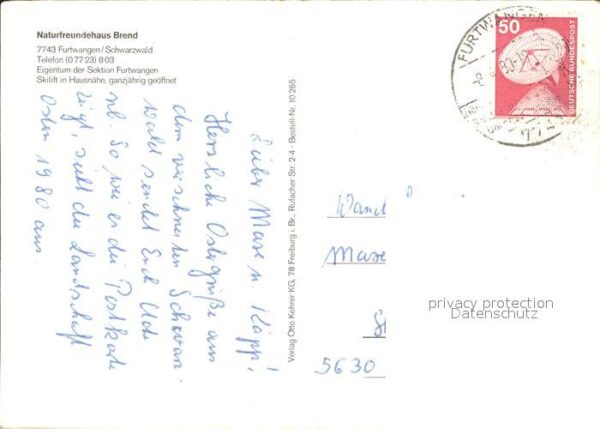 Naturfreundehaus Brend
7743 Furtwangen/Schwarzwald
Telefon (07723) 803
Eigentum der Sektion Furtwangen
Skilift in Hausnähe, ganzjährig geöffnet
Herzliche Ostergrüße aus
dem verschneiten Schwarz-
wald sendet Euch Ude
nb. So wie es die Postkarte
zeigt, sieht die Landschaft
Ostern 1980 aus.
Verlag Otto Kehrer KG, 78 Freiburg i. Br., Rufacher Str. 2-4 · Bestell-Nr. 10.265
FURTWANGEN
50
DEUTSCHE BUNDESPOST
5630
privacy protection
Datenschutz